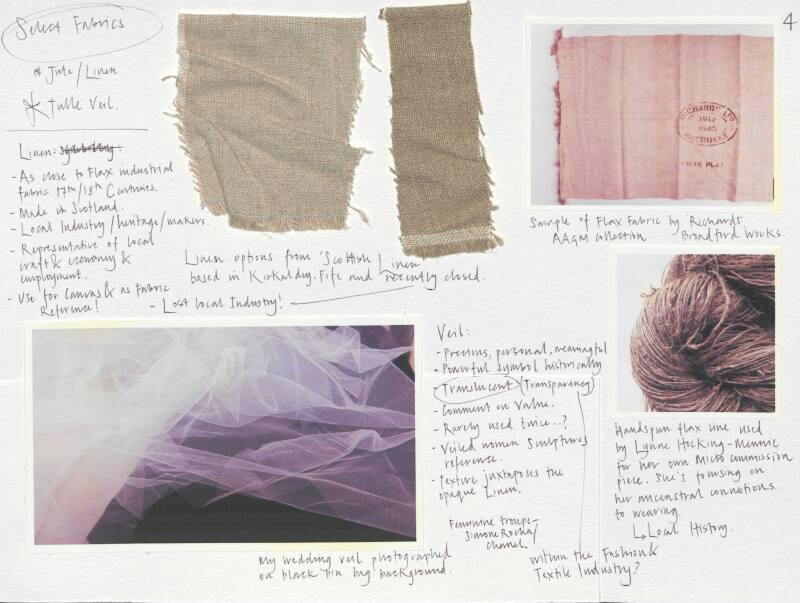 4
Select Fabrics
* Jute/Linen
* Tulle Veil.
Linen:
- As close to Flax industrial
fabric 17th/18th Centuries.
- Made in Scotland.
- Local Industry/heritage/makers.
- Representative of local
craft & economy &
employment.
- Use for Canvas & as Fabric
Reference!
Linen options from 'Scottish Linen
based in Kirkaldy. Fife and recently closed.
- Lost local Industry!
RICHARDS LTD
JULY
1945
ABERDEEN
PURE FLAX
Sample of Flax Fabric by Richards
AAGM Collection. Broadford Works.
Veil:
- Precious, personal, meaningful
- Powerful symbol historically
- Translucent (Transparency)
- Comment on Value.
- Rarely used twice..?
- Veiled women Sculptures
reference.
- Texture juxtaposes the
opaque Linen.
Feminine troupe -
Simone Rocha/
Chanel.
within the Fashion &
Textile Industry?
My wedding veil photographed
on black bin bag background.
Handspun flax line used
by Lynne Hocking-Mennie
for her own Micro commission
piece. She's focusing on
her ancenstral connections
to wearing.
Local History.